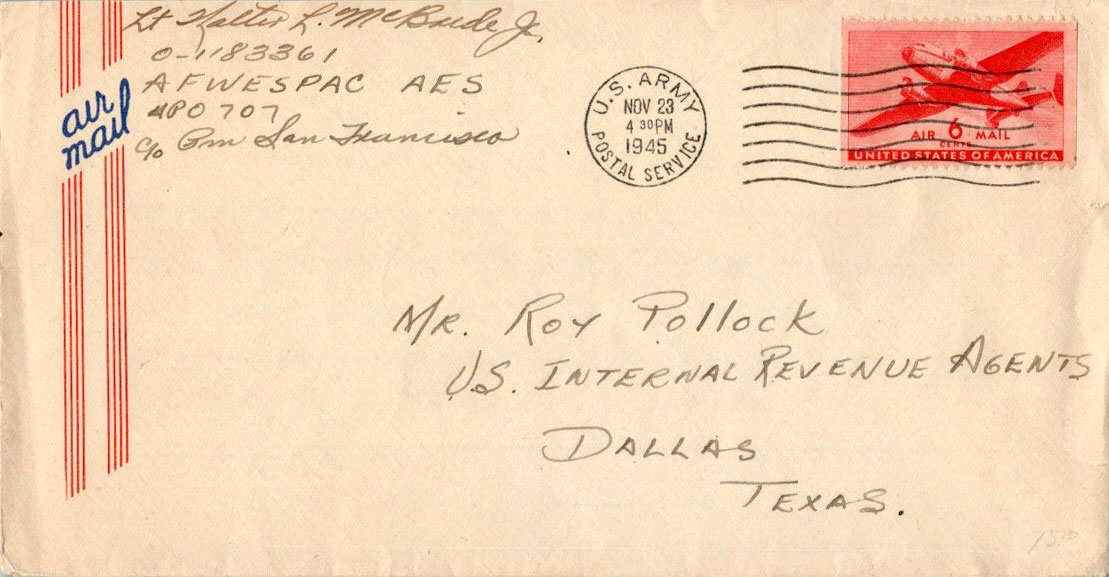 Lt Walter L. McBride Jr.
O-1183361
AFWESPAC AES
APO 707
c/o Pm San Francisco
air
mail
U.S. ARMY
NOV 23
4 30 PM
1945
POSTAL SERVICE
AIR 6 MAIL
CENTS
UNITED STATES OF AMERICA
Mr. Roy Pollock
U.S. INTERNAL REVENUE AGENTS
DALLAS
TEXAS.